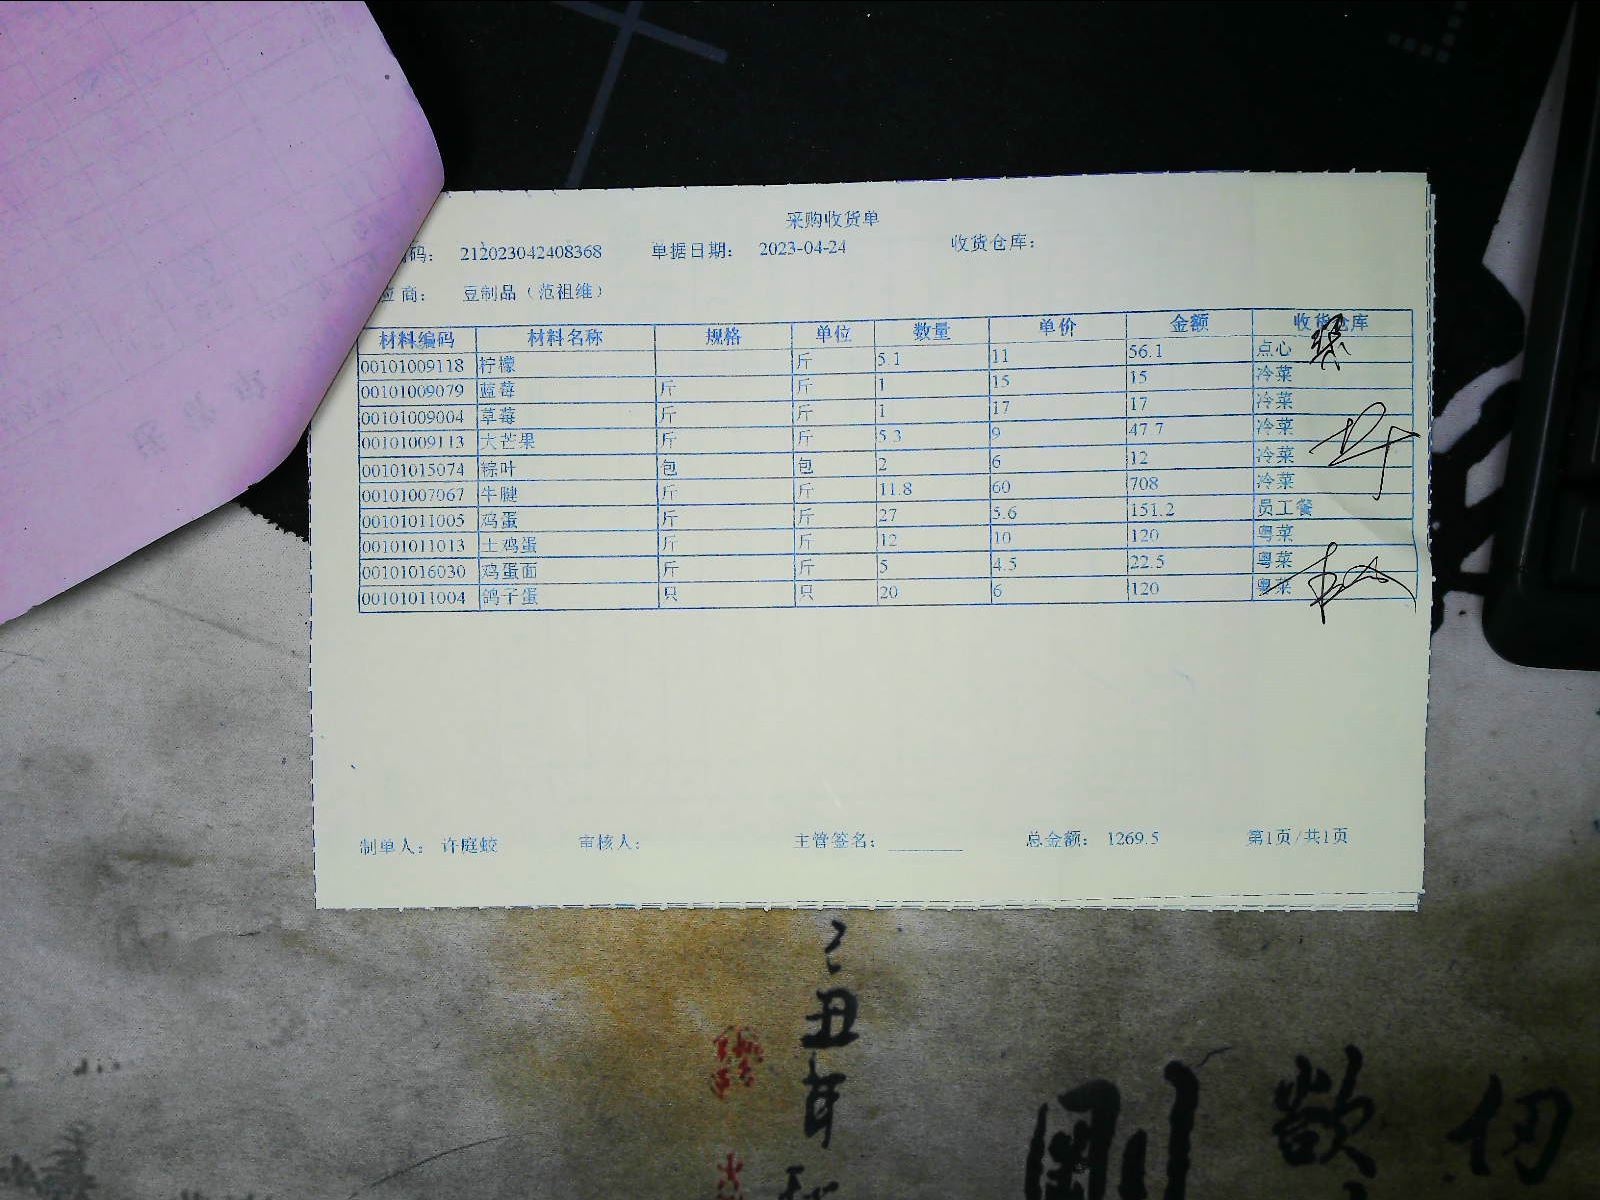 采购收货单
码： 212023042408368 单据日期： 2023-04-24 收货仓库：
应商： 豆制品（范祖维）
材料编码 材料名称 规格 单位 数量 单价 金额 收货仓库
00101009118 柠檬 斤 5.1 11 56.1 点心
00101009079 蓝莓 斤 斤 1 15 15 冷菜
00101009004 草莓 斤 斤 1 17 17 冷菜
00101009113 大芒果 斤 斤 5.3 9 47.7 冷菜
00101015074 粽叶 包 包 2 6 12 冷菜
00101007067 牛腱 斤 斤 11.8 60 708 冷菜
00101011005 鸡蛋 斤 斤 27 5.6 151.2 员工餐
00101011013 土鸡蛋 斤 斤 12 10 120 粤菜
00101016030 鸡蛋面 斤 斤 5 4.5 22.5 粤菜
00101011004 鸽子蛋 只 只 20 6 120 粤菜
制单人： 许庭蛟 审核人： 主管签名： 总金额： 1269.5 第1页/共1页
丑年
剛 欲 仞